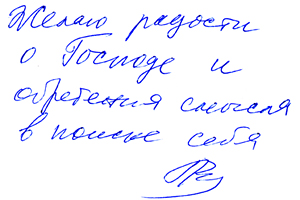 Желаю радости
о Господе и
обретения смысла
в поиске себя